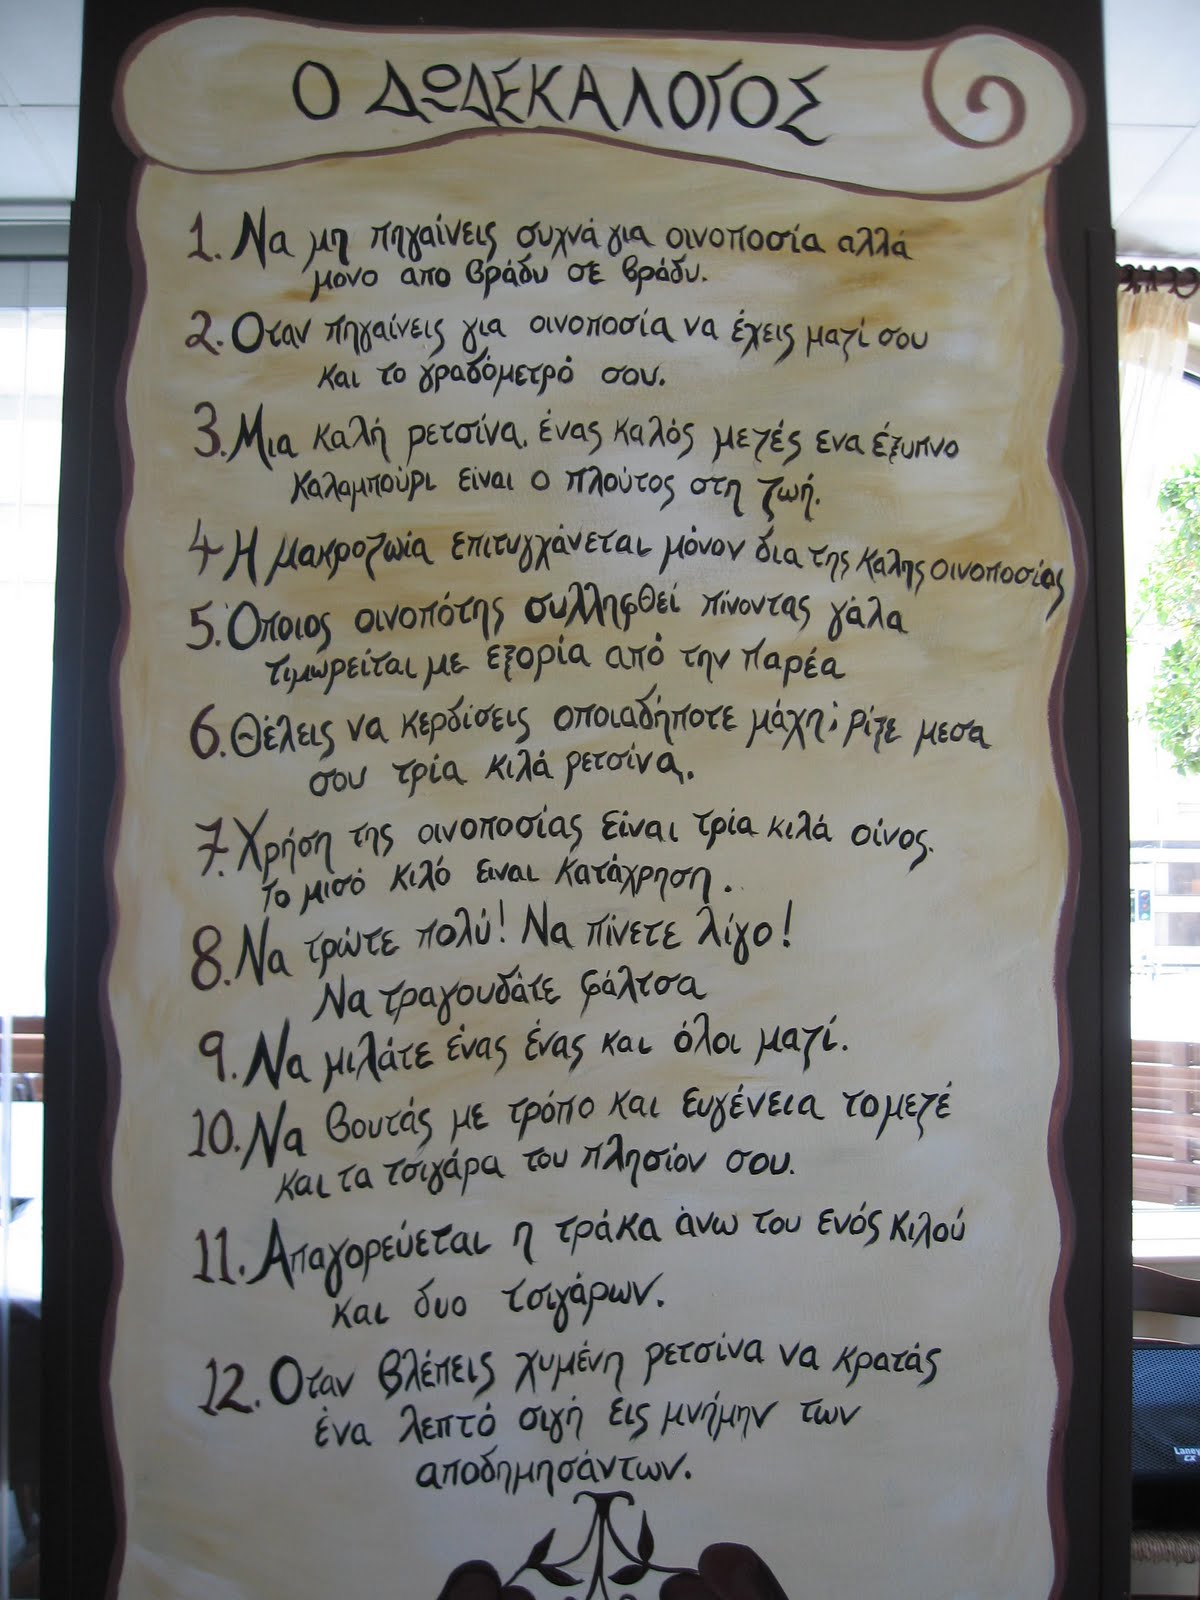 Ο ΔΩΔΕΚΑΛΟΓΟΣ
1. Να μη πηγαίνεις συχνά για οινοποσία αλλά
μονο απο βράδυ σε βράδυ.
2. Οταν πηγαίνεις για οινοποσία να έχεις μαζί σου
και το γραδόμετρό σου.
3. Μια καλή ρετσίνα, ένας καλός μεζές ενα έξυπνο
καλαμπούρι είναι ο πλούτος στη ζωή.
4 Η μακροζωία επιτυγχάνεται μόνον δια της καλης οινοποσίας
5. Όποιος οινοπότης συλληφθεί πίνοντας γάλα
τιμωρείται με εξορία από την παρέα
6. Θέλεις να κερδίσεις οποιαδήποτε μάχη; ρίξε μεσα
σου τρία κιλά ρετσίνα.
7. Χρήση της οινοποσίας είναι τρία κιλά οίνος.
Το μισό κιλό ειναι κατάχρηση.
8. Να τρώτε πολύ! Να πίνετε λίγο!
Να τραγουδάτε φάλτσα
9. Να μιλάτε ένας ένας και όλοι μαζί.
10. Να βουτάς με τρόπο και ευγένεια το μεζέ
και τα τσιγάρα του πλησίον σου.
11. Απαγορεύεται η τράκα άνω του ενός κιλού
και δυο τσιγάρων.
12. Οταν βλέπεις χυμένη ρετσίνα να κρατάς
ένα λεπτό σιγή εις μνήμην των
αποδημησάντων.
Laney
CX